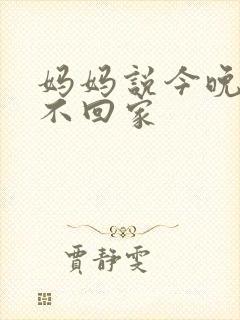 妈妈説今晚
不回家
賈静雯